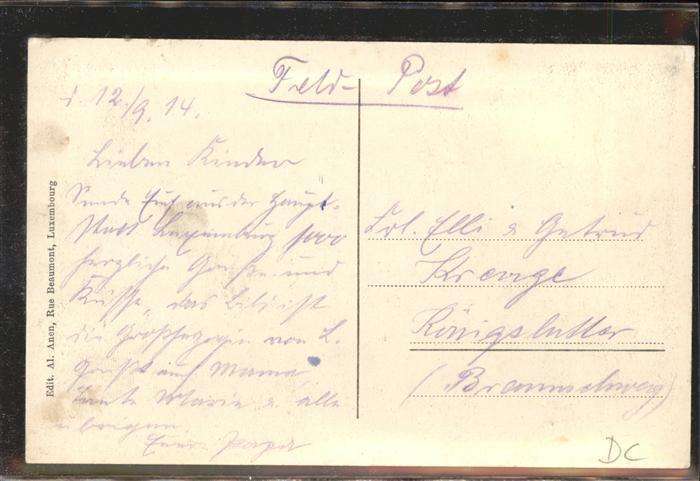 Feld-Post
d. 12/9. 14.
Lieben Kinder
Sende Euch aus der Haupt-
stadt Luxemburg 1000
herzliche Grüße und
Küsse, das Bild ist
die Großherzogin von L.
Grüßt auch Mama,
Tante Marie & alle
übrigen.
Euer Papa
Frl. Elli & Getrud
Königslutter
(Braunschweig)
Edit. Al. Anen, Rue Beaumont, Luxembourg
DC